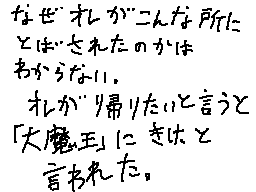 なぜオレがこんな所に
とばされたのかは
わからない。
オレが帰りたいと言うと
「大魔王」にきけと
言われた。